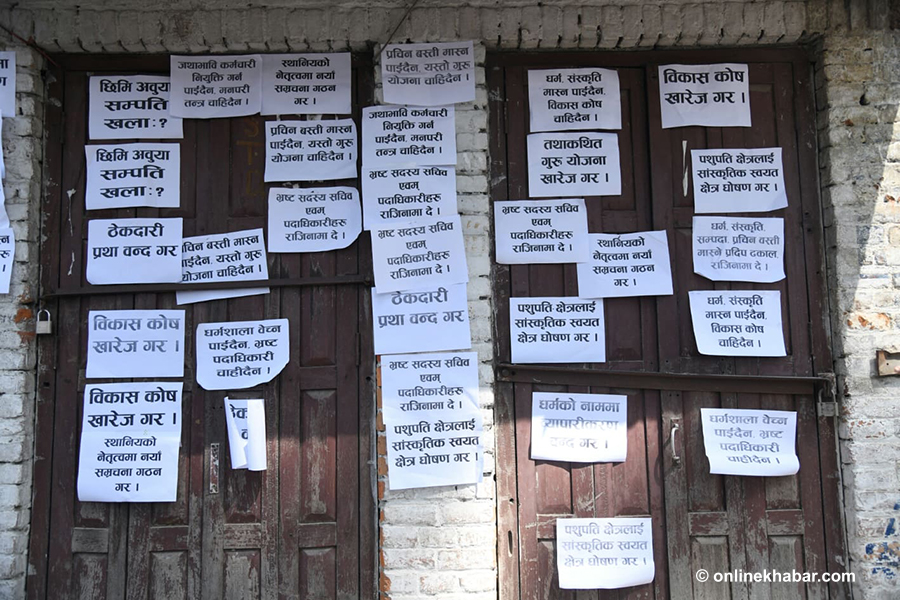 छिमि अवुया
सम्पति
खलाः?
जथाभावि कर्मचारी
नियुक्ति गर्न
पाईदैन, मनपरी
तन्त्र चाहिदैन ।
स्थानियको
नेतृत्वमा नयाँ
सम्रचना गठन
गर ।
छिमि अवुया
सम्पति
खलाः?
प्रचिन बस्ती मास्न
पाईदैन, यस्तो गुरु
योजना चाहिदैन ।
ठेकदारी
प्रथा वन्द गर
प्रचिन बस्ती मास्न
पाईदैन, यस्तो गुरु
योजना चाहिदैन ।
भ्रष्ट सदस्य सचिव
एवम्
पदाधिकारीहरू
राजिनामा दे ।
विकास कोष
खारेज गर ।
धर्मशाला वेच्न
पाईदैन, भ्रष्ट
पदाधिकारी
चाहीदैन ।
विकास कोष
खारेज गर ।
स्थानियको
नेतृत्वमा नयाँ
सम्रचना गठन
गर ।
प्रचिन बस्ती मास्न
पाईदैन, यस्तो गुरु
योजना चाहिदैन ।
जथाभावि कर्मचारी
नियुक्ति गर्न
पाईदैन, मनपरी
तन्त्र चाहिदैन ।
भ्रष्ट सदस्य सचिव
एवम्
पदाधिकारीहरू
राजिनामा दे ।
भ्रष्ट सदस्य सचिव
एवम्
पदाधिकारीहरू
राजिनामा दे ।
ठेकदारी
प्रथा वन्द गर
भ्रष्ट सदस्य सचिव
एवम्
पदाधिकारीहरू
राजिनामा दे ।
पशुपति क्षेत्रलाई
सांस्कृतिक स्वयत
क्षेत्र घोषण गर ।
धर्म, संस्कृति
मास्न पाईदैन,
विकास कोष
चाहिदैन ।
विकास कोष
खारेज गर ।
तथाकथित
गुरु योजना
खारेज गर ।
पशुपती क्षेत्रलाई
सांस्कृतिक स्वयत
क्षेत्र घोषण गर ।
भ्रष्ट सदस्य सचिव
एवम्
पदाधिकारीहरू
राजिनामा दे ।
स्थानियको
नेतृत्वमा नयाँ
सम्रचना गठन
गर ।
धर्म, संस्कृति,
सम्पदा, प्रचिन बस्ती
मास्ने प्रदिप ढकाल,
राजिनामा दे ।
पशुपति क्षेत्रलाई
सांस्कृतिक स्वयत
क्षेत्र घोषण गर ।
धर्म, संस्कृति
मास्न पाईदैन,
विकास कोष
चाहिदैन ।
धर्मको नाममा
व्यापारीकरण
वन्द गर ।
धर्मशाला वेच्न
पाईदैन, भ्रष्ट
पदाधिकारी
चाहीदैन ।
पशुपति क्षेत्रलाई
सांस्कृतिक स्वयत
क्षेत्र घोषण गर ।
© onlinekhabar.com